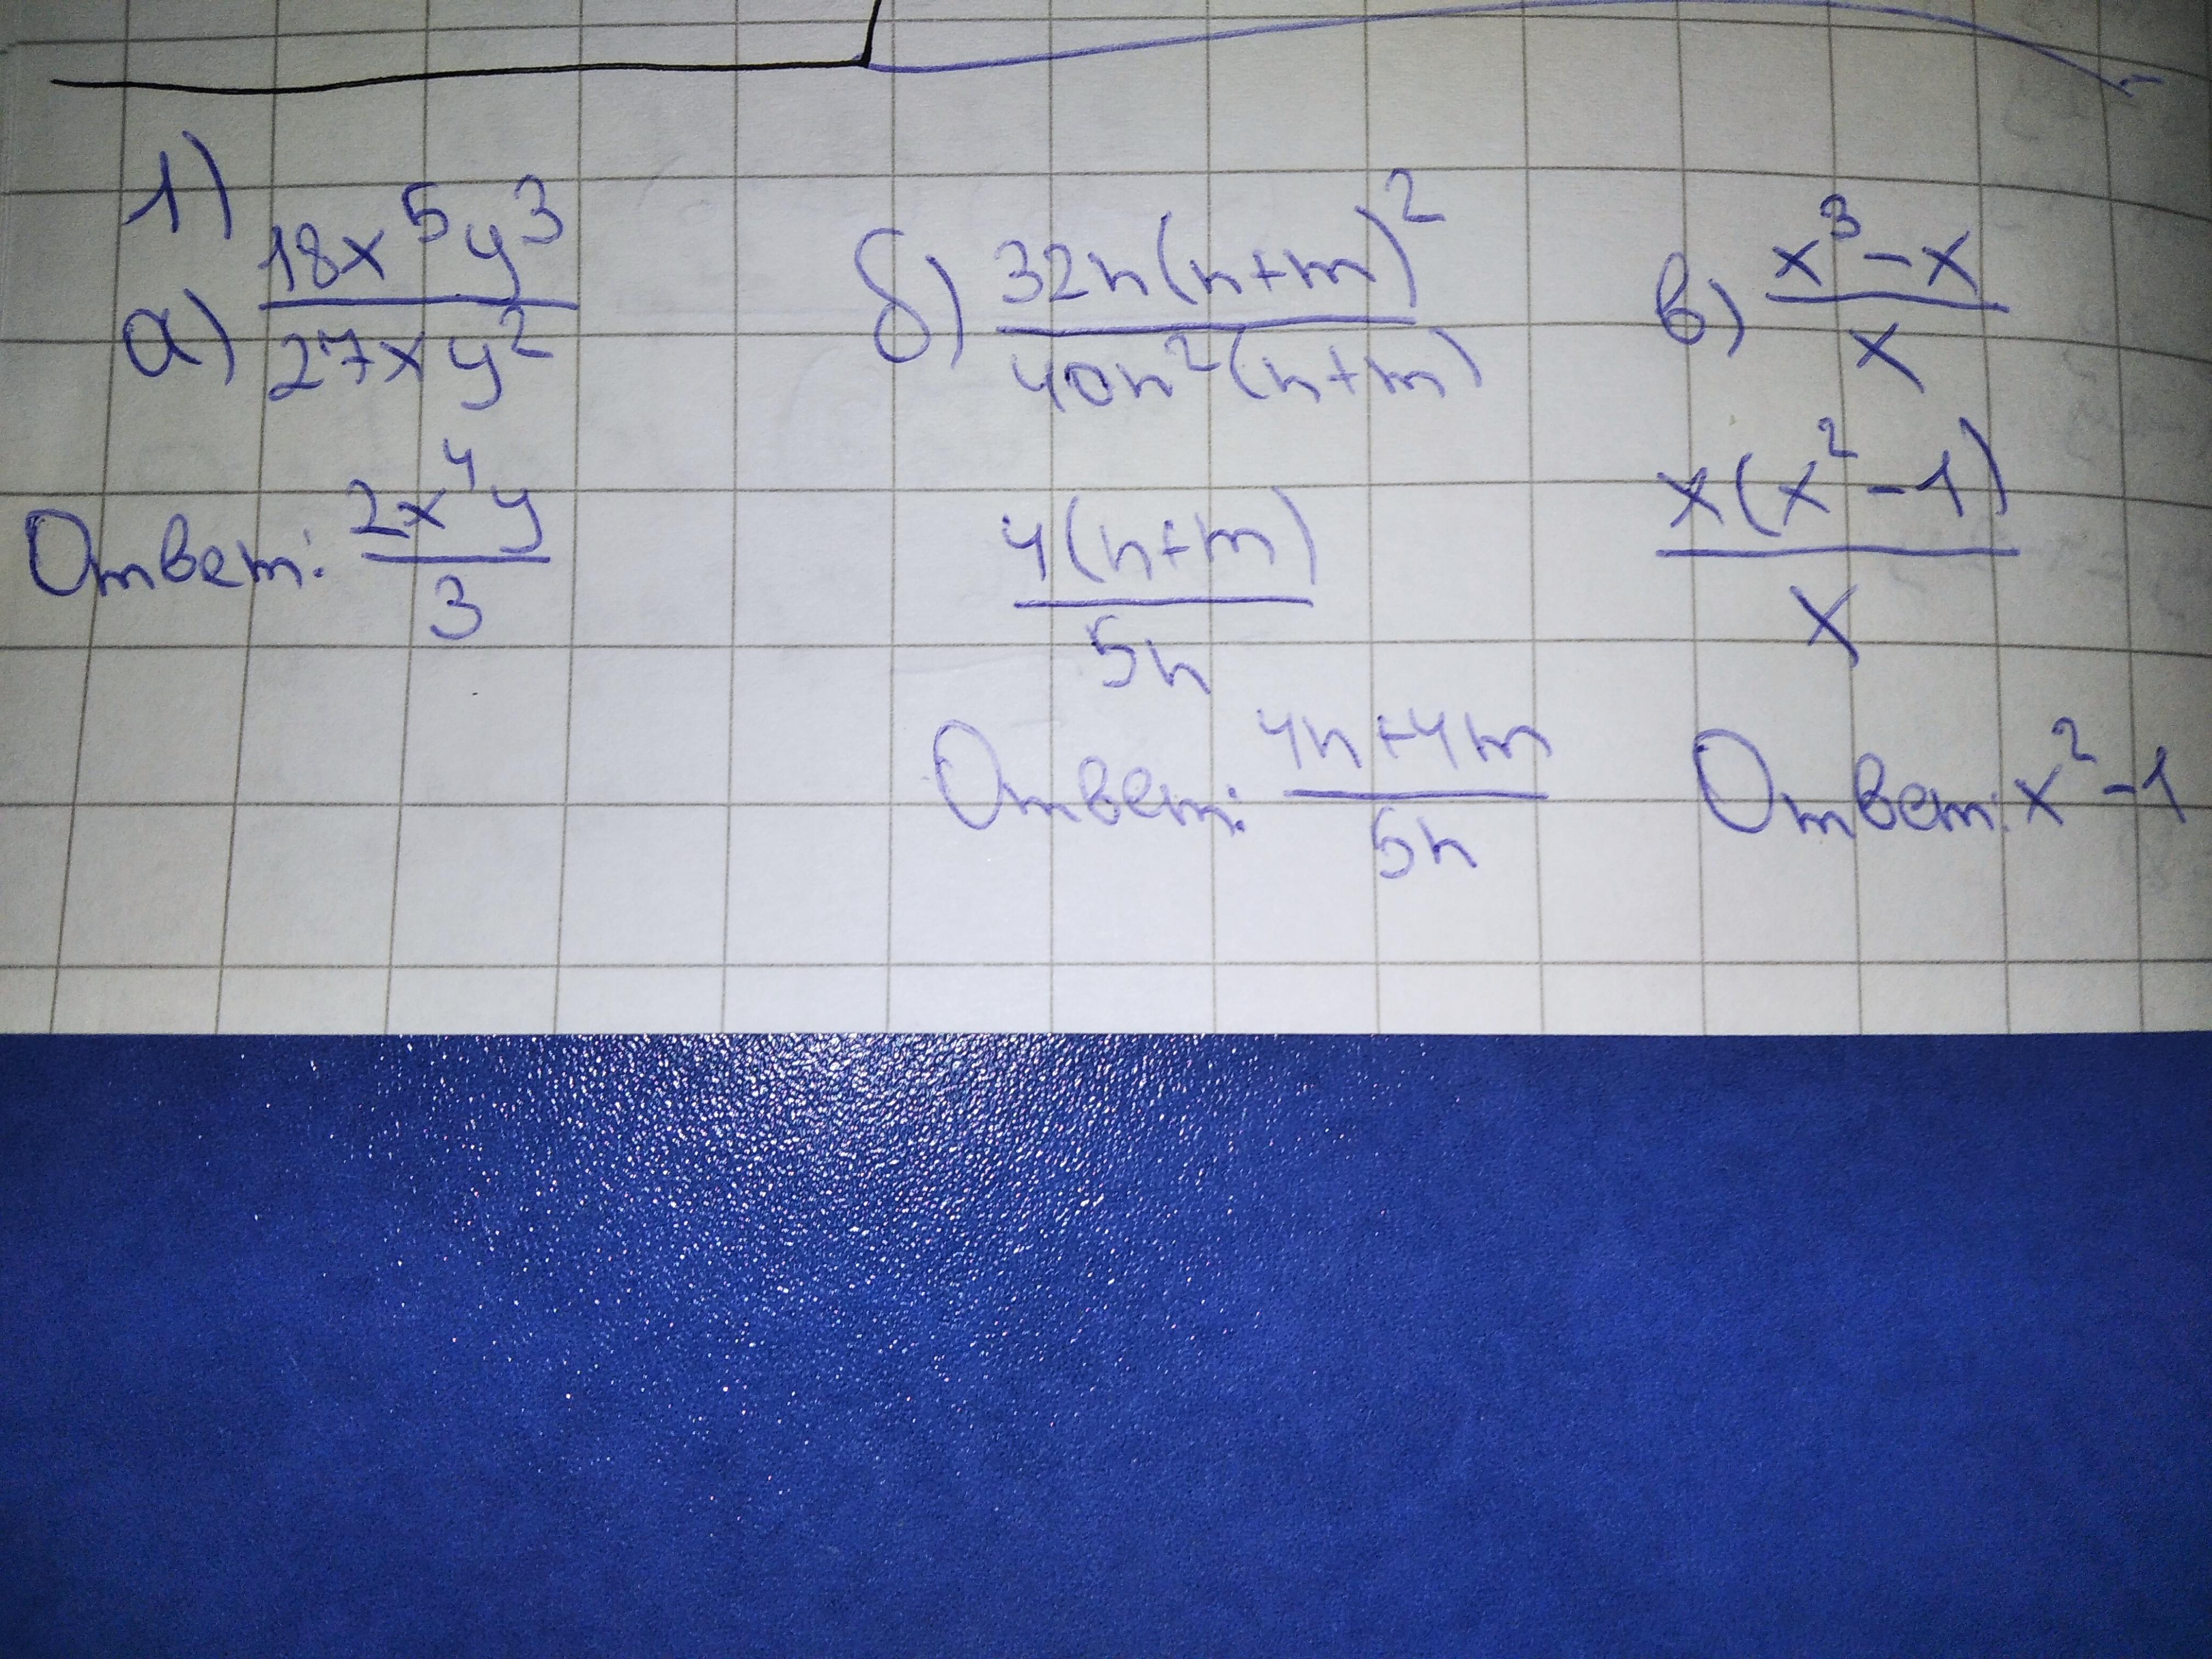 1)
а) 18x⁵y³/27xy²
Ответ: 2x⁴y/3
б) 32n(n+m)²/40n²(n+m)
4(n+m)/5n
Ответ: 4n+4m/5n
в) x³-x/x
x(x²-1)/x
Ответ: x²-1